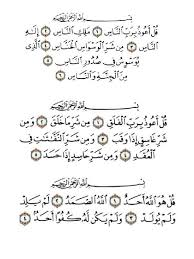 بِسْمِ ٱللَّهِ ٱلرَّحْمَٰنِ ٱلرَّحِيمِ
قُلْ أَعُوذُ بِرَبِّ ٱلنَّاسِ ١ مَلِكِ ٱلنَّاسِ ٢ إِلَٰهِ
ٱلنَّاسِ ٣ مِن شَرِّ ٱلْوَسْوَاسِ ٱلْخَنَّاسِ ٤ ٱلَّذِى
يُوَسْوِسُ فِى صُدُورِ ٱلنَّاسِ ٥
مِنَ ٱلْجِنَّةِ وَٱلنَّاسِ ٦
بِسْمِ ٱللَّهِ ٱلرَّحْمَٰنِ ٱلرَّحِيمِ
قُلْ أَعُوذُ بِرَبِّ ٱلْفَلَقِ ١ مِن شَرِّ مَا خَلَقَ ٢ وَمِن
شَرِّ غَاسِقٍ إِذَا وَقَبَ ٣ وَمِن شَرِّ ٱلنَّفَّٰثَٰتِ فِى
ٱلْعُقَدِ ٤ وَمِن شَرِّ حَاسِدٍ إِذَا حَسَدَ ٥
بِسْمِ ٱللَّهِ ٱلرَّحْمَٰنِ ٱلرَّحِيمِ
قُلْ هُوَ ٱللَّهُ أَحَدٌ ١ ٱللَّهُ ٱلصَّمَدُ ٢ لَمْ يَلِدْ
وَلَمْ يُولَدْ ٣ وَلَمْ يَكُن لَّهُۥ كُفُوًا أَحَدٌۢ ٤